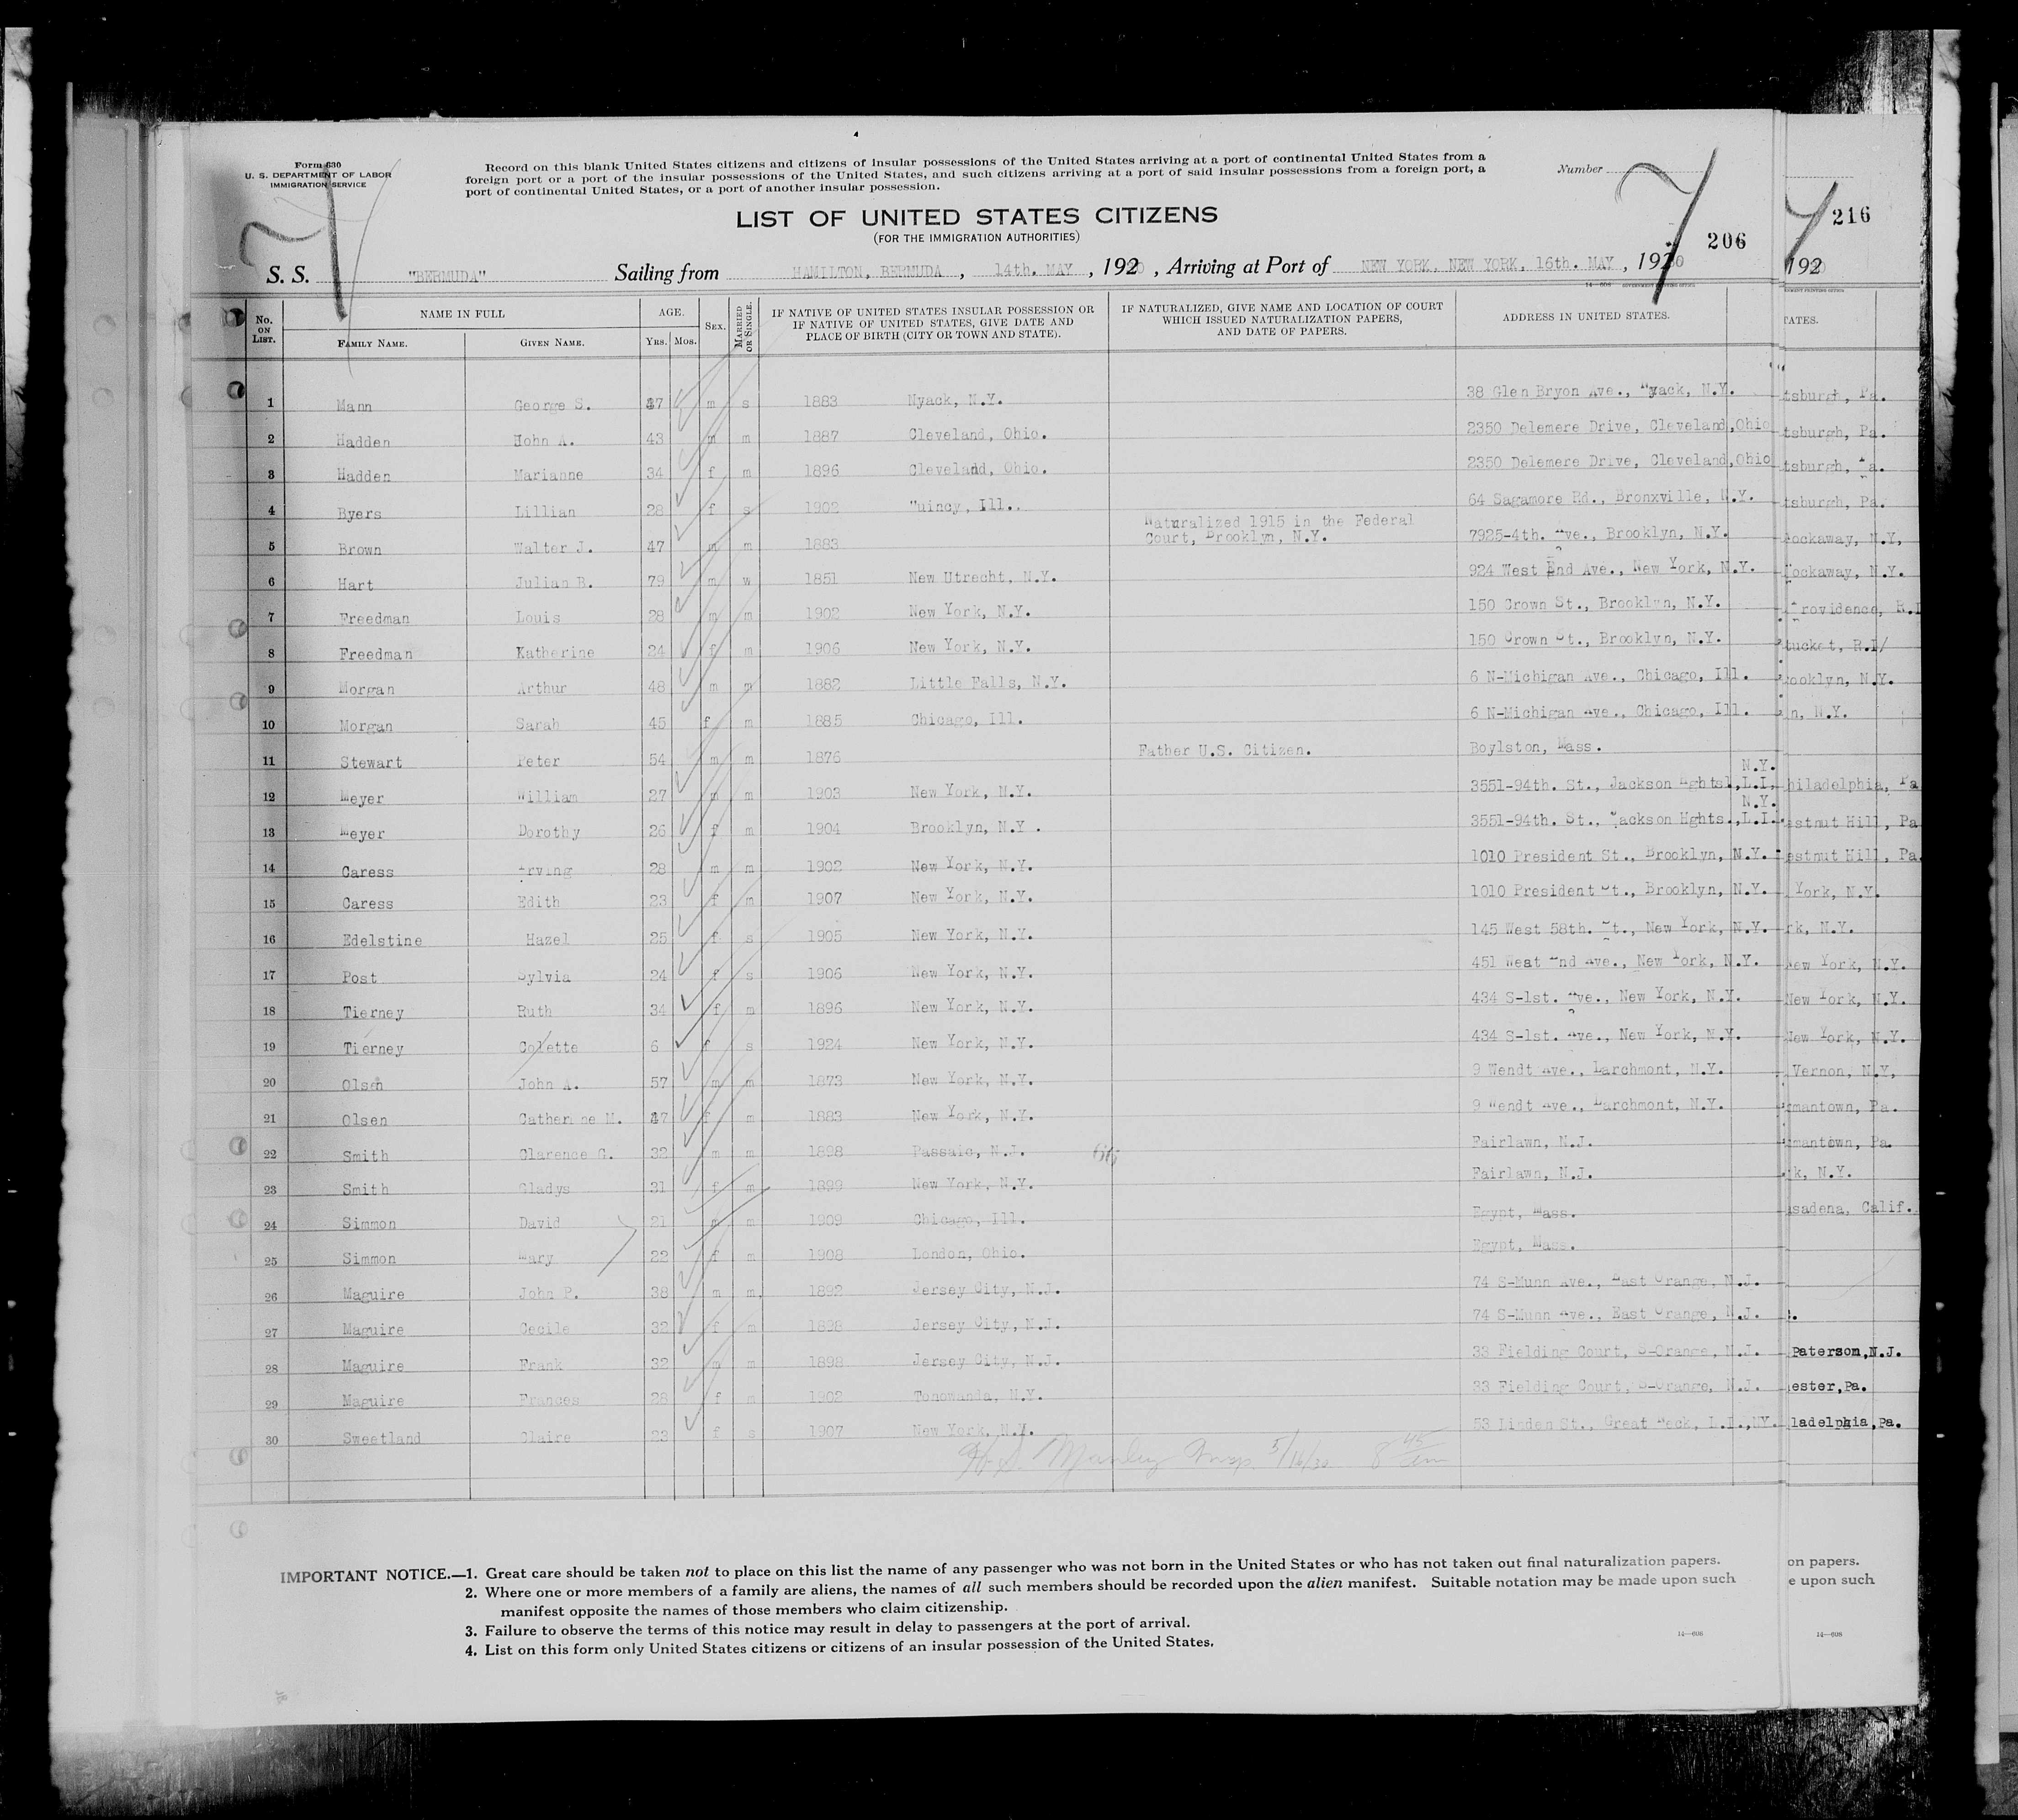 Form 630
U. S. DEPARTMENT OF LABOR
IMMIGRATION SERVICE
Record on this blank United States citizens and citizens of insular possessions of the United States arriving at a port of continental United States from a
foreign port or a port of the insular possessions of the United States, and such citizens arriving at a port of said insular possessions from a foreign port, a
port of continental United States, or a port of another insular possession.
Number
7
7
LIST OF UNITED STATES CITIZENS
(FOR THE IMMIGRATION AUTHORITIES)
206
216
S. S. "BERMUDA" Sailing from HAMILTON, BERMUDA, 14th. MAY, 1920, Arriving at Port of NEW YORK, NEW YORK, 16th. MAY, 1930
192
No. ON LIST. NAME IN FULL AGE. SEX. MARRIED OR SINGLE. IF NATIVE OF UNITED STATES INSULAR POSSESSION OR IF NATIVE OF UNITED STATES, GIVE DATE AND PLACE OF BIRTH (CITY OR TOWN AND STATE). IF NATURALIZED, GIVE NAME AND LOCATION OF COURT WHICH ISSUED NATURALIZATION PAPERS, AND DATE OF PAPERS. ADDRESS IN UNITED STATES. TATES.
FAMILY NAME. GIVEN NAME. YRS. MOS.
1 Mann George S. 47 m s 1883 Nyack, N.Y. 38 Glen Bryon Ave., Nyack, N.Y. tsburgh, Pa.
2 Hadden John A. 43 m m 1887 Cleveland, Ohio. 2350 Delemere Drive, Cleveland, Ohio tsburgh, Pa.
3 Hadden Marianne 34 f m 1896 Cleveland, Ohio. 2350 Delemere Drive, Cleveland, Ohio tsburgh, Pa.
4 Byers Lillian 28 f s 1902 "uincy, Ill.. 64 Sagamore Rd., Bronxville, N.Y. tsburgh, Pa.
5 Brown Walter J. 47 m m 1883 Naturalized 1915 in the Federal Court, Brooklyn, N.Y. 7925-4th. Ave., Brooklyn, N.Y. ockaway, N.Y,
6 Hart Julian B. 79 m w 1851 New Utrecht, N.Y. 924 West End Ave., New York, N.Y. ockaway, N.Y.
7 Freedman Louis 28 m m 1902 New York, N.Y. 150 Crown St., Brooklyn, N.Y. Providence, R.I
8 Freedman Katherine 24 f m 1906 New York, N.Y. 150 Crown St., Brooklyn, N.Y. tucket, R.I/
9 Morgan Arthur 48 m m 1882 Little Falls, N.Y. 6 N-Michigan Ave., Chicago, Ill. ooklyn, N.Y.
10 Morgan Sarah 45 f m 1885 Chicago, Ill. 6 N-Michigan Ave., Chicago, Ill. n, N.Y.
11 Stewart Peter 54 m m 1876 Father U.S. Citizen. Boylston, Mass.
12 Meyer William 27 m m 1903 New York, N.Y. 3551-94th. St., Jackson Hghts., L.I, N.Y. hiladelphia, Pa
13 Meyer Dorothy 26 f m 1904 Brooklyn, N.Y. 3551-94th. St., Jackson Hghts., L.I. N.Y. estnut Hill, Pa
14 Caress Irving 28 m m 1902 New York, N.Y. 1010 President St., Brooklyn, N.Y. estnut Hill, Pa.
15 Caress Edith 23 f m 1907 New York, N.Y. 1010 President St., Brooklyn, N.Y. York, N.Y.
16 Edelstine Hazel 25 f s 1905 New York, N.Y. 145 West 58th. St., New York, N.Y. rk, N.Y.
17 Post Sylvia 24 f s 1906 New York, N.Y. 451 West End Ave., New York, N.Y. New York, N.Y.
18 Tierney Ruth 34 f m 1896 New York, N.Y. 434 S-1st. Ave., New York, N.Y. New York, N.Y.
19 Tierney Colette 6 f s 1924 New York, N.Y. 434 S-1st. Ave., New York, N.Y. New York, N.Y.
20 Olsen John A. 57 m m 1873 New York, N.Y. 9 Wendt Ave., Larchmont, N.Y. Vernon, N.Y,
21 Olsen Catherine M. 47 f m 1883 New York, N.Y. 9 Wendt Ave., Larchmont, N.Y. rmantown, Pa.
22 Smith Clarence G. 32 m m 1898 Passaic, N.J. Fairlawn, N.J. rmantown, Pa.
23 Smith Gladys 31 f m 1899 New York, N.Y. Fairlawn, N.J. k, N.Y.
24 Simmon David 21 m m 1909 Chicago, Ill. Egypt, Mass. asadena, Calif.
25 Simmon Mary 22 f m 1908 London, Ohio. Egypt, Mass.
26 Maguire John P. 38 m m. 1892 Jersey City, N.J. 74 S-Munn Ave., East Orange, N.J.
27 Maguire Cecile 32 f m 1898 Jersey City, N.J. 74 S-Munn Ave., East Orange, N.J.
28 Maguire Frank 32 m m 1898 Jersey City, N.J. 33 Fielding Court, S-Orange, N.J. Paterson, N.J.
29 Maguire Frances 28 f m 1902 Tonowanda, N.Y. 33 Fielding Court, S-Orange, N.J. ester, Pa.
30 Sweetland Claire 23 f s 1907 New York, N.Y. 53 Linden St., Great Neck, L.I., NY. ladelphia, Pa.
5/16/30 8 45 am
IMPORTANT NOTICE.—1. Great care should be taken not to place on this list the name of any passenger who was not born in the United States or who has not taken out final naturalization papers. on papers.
2. Where one or more members of a family are aliens, the names of all such members should be recorded upon the alien manifest. Suitable notation may be made upon such e upon such
manifest opposite the names of those members who claim citizenship.
3. Failure to observe the terms of this notice may result in delay to passengers at the port of arrival.
4. List on this form only United States citizens or citizens of an insular possession of the United States.
14—608